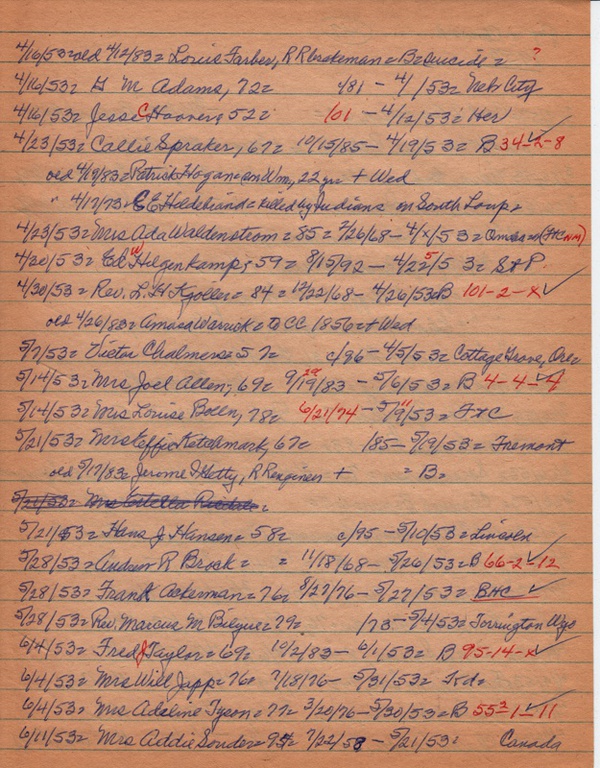 4/16/53= old 4/12/83= Louis Farber, RR brakeman = B= suicide = ?
4/16/53= G M Adams, 72= 4/81 - 4/ /53= Neb City
4/16/53= Jesse C Hoover, 52= 101 - 4/12/53= Her
4/23/53= Callie Spraker, 67= 10/15/85 - 4/19/53= B 34-2-8
old 4/19/83= Patrick Hogan= and Wm, 22 yr + Wed
" 4/17/73= E E Hildebrand = killed by Indians on South Loup=
4/23/53= Mrs Ada Waldenstrom = 85= 2/26/68 - 4/x/53= Omaha (F+C NM)
4/30/53= Ed (W) Hilgenkamp, 59= 8/15/92 - 4/22/53= S+P
4/30/53= Rev. L. H. Kgoller= 84= 12/22/68 - 4/26/53= B 101-2-x
old 4/26/83= Amasa Warrick = to CC 1856= + Wed
5/7/53= Victor Chalmers= 57= c/96 - 4/5/53= Cottage Grove, Ore=
5/14/53= Mrs Joel Allen, 69= 9/19/83 - 5/6/53= B 4-4-4
5/14/53= Mrs Louise Boln, 78= 6/21/74 - 5/9/53= F+C
5/21/53= Mrs Effie Ketchmark, 67= /85 - 5/19/53= Fremont
old 5/17/83= Jerome Getty, RR engineer + = B=
5/21/53= Mrs Estella =
5/21/53= Hans J Hansen= 58= c/95 - 5/10/53= Lincoln
5/28/53= Andrew R Brock= = 11/18/68 - 5/26/53= B 66-2-12
5/28/53= Frank Ackerman= 76= 8/27/76 - 5/27/53= BHC
5/28/53= Rev. Marcus M = 79= /73 - 5/4/53= Torrington Wyo
6/4/53= Fred J Taylor= 69= 10/2/83 - 6/1/53= B 95-14-x
6/4/53= Mrs Will Japp= 76= 7/18/76 - 5/31/53= Kd=
6/4/53= Mrs Adeline Tyson= 77= 3/20/76 - 5/30/53= B 55²-1-11
6/11/53= Mrs Addie Souder= 95= 7/22/58 - 5/21/53= Canada